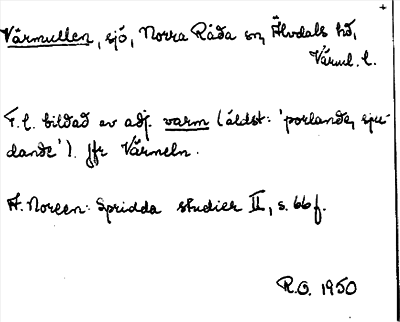 Värmullen, sjö, Norra Råda sn, Älvdals hd,
Värml. l.
F.l. bildad av adj. varm (äldst: 'porlande, sju-
dande'). Jfr Värmeln.
A. Noreen: Spridda studier II, s. 66 f.
R.O. 1950